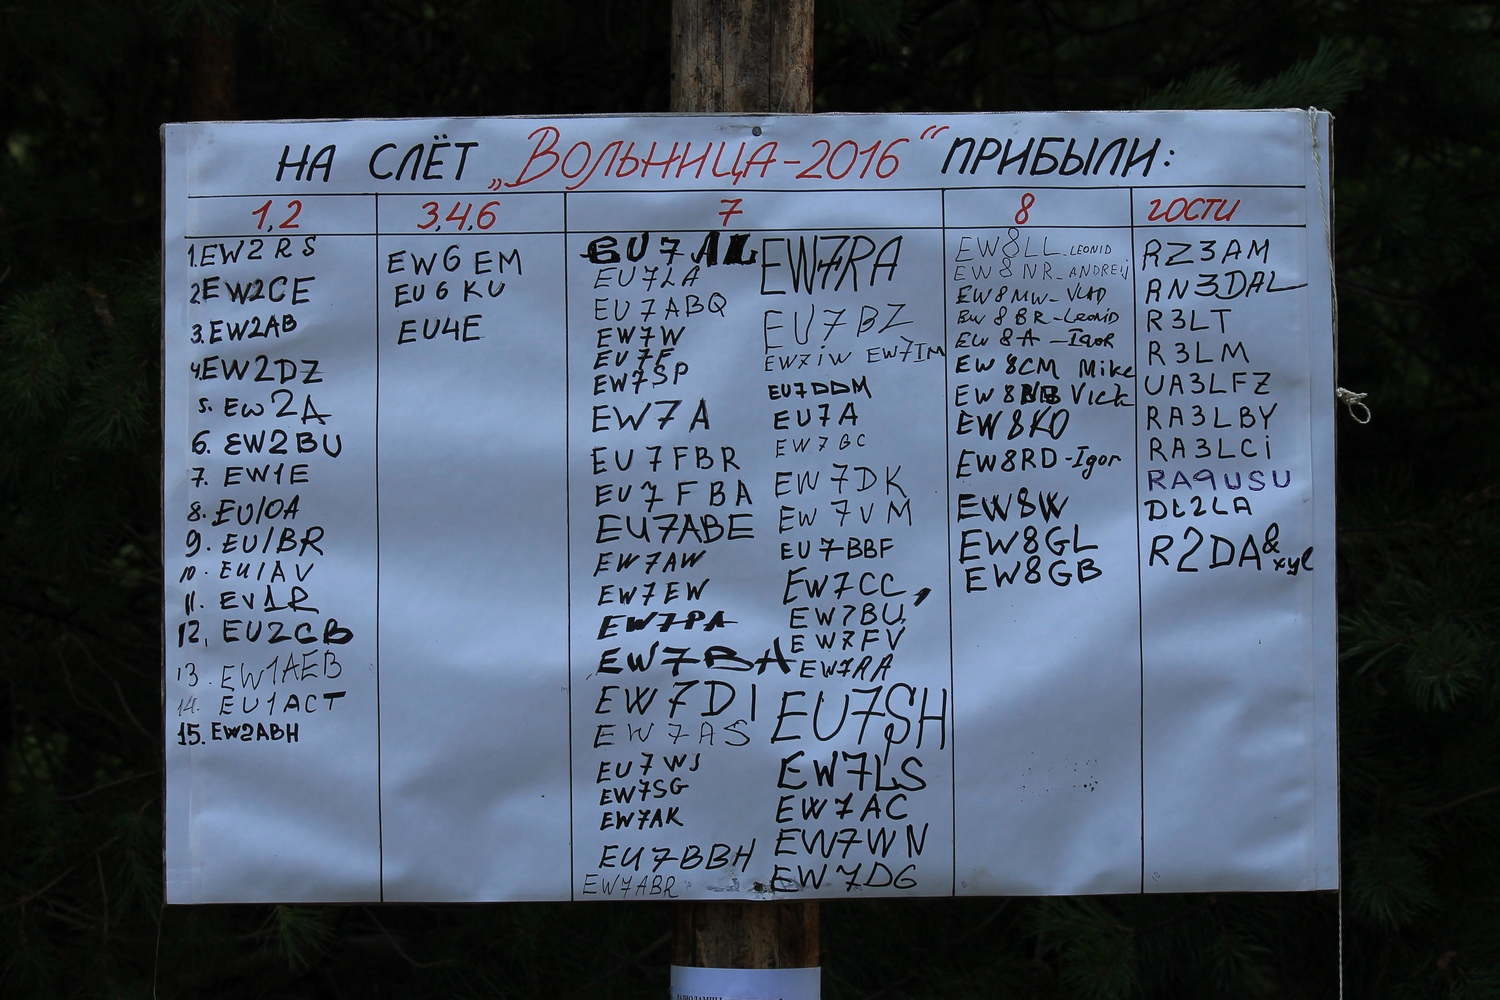 НА СЛЁТ „ВОЛЬНИЦА-2016“ ПРИБЫЛИ:
1,2
1. EW2RS
2 EW2CE
3. EW2AB
4. EW2DZ
5. EW2A
6. EW2BU
7. EW1E
8. EU1OA
9. EU1BR
10. EU1AV
11. EV1R
12, EU2CB
13. EW1AEB
14. EU1ACT
15. EW2ABH
3,4,6
EW6EM
EU6KU
EU4E
7
EU7AL
EU7LA
EU7ABQ
EW7W
EU7F
EW7SP
EW7A
EU7FBR
EU7FBA
EU7ABE
EW7AW
EW7EW
EW7PA
EW7BA
EW7DI
EW7AS
EU7WJ
EW7SG
EW7AK
EU7BBH
EW7ABR
EW7RA
EU7BZ
EW7IW EW7IM
EU7DDM
EU7A
EW7GC
EW7DK
EW7VM
EU7BBF
EW7CC,
EW7BU
EW7FV
EW7AA
EU7SH
EW7LS
EW7AC
EW7WN
EW7DG
8
EW8LL-LEONID
EW8NR-ANDREIJ
EW8MW-VLAD
EW8BR-Leonid
EW8A-IGOR
EW8CM Mike
EW8NB Vick
EW8KO
EW8RD-Igor
EW8W
EW8GL
EW8GB
ГОСТИ
RZ3AM
RN3DAL
R3LT
R3LM
UA3LFZ
RA3LBY
RA3LCi
RA9USU
DL2LA
R2DA & xyl